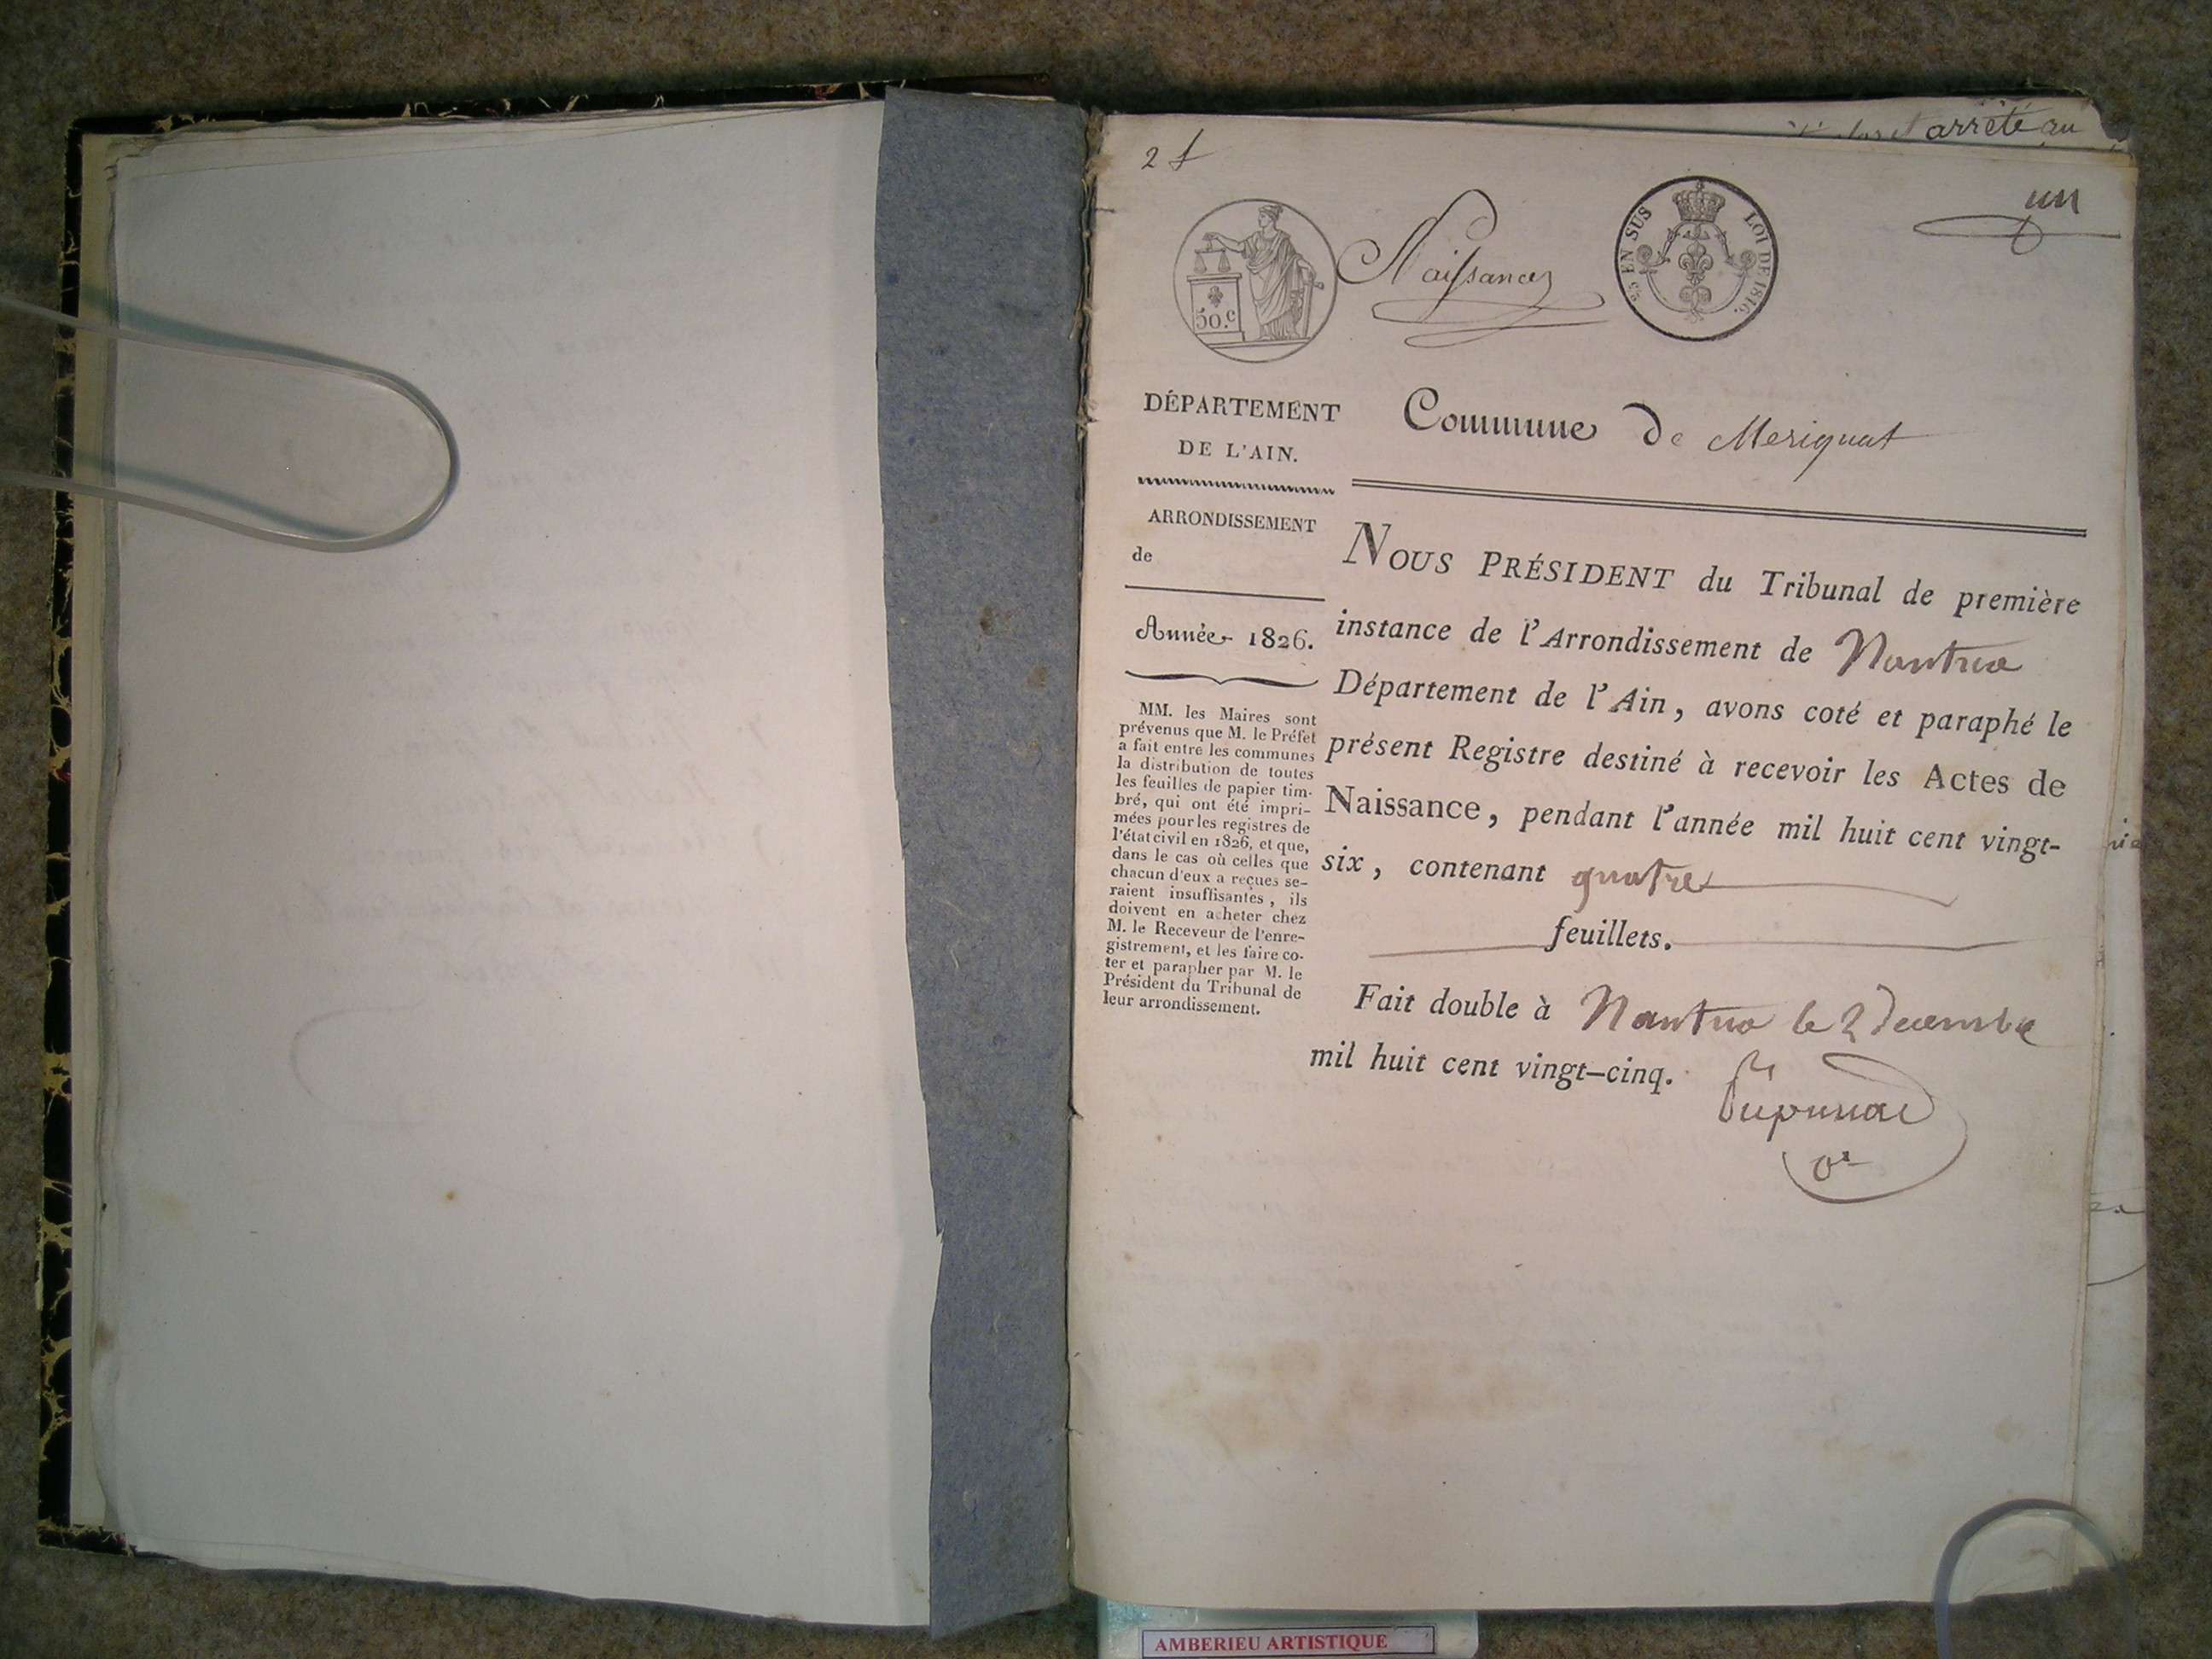 arrêté au
2 f
un
50.c
Naissances
EN SUS
LOI DE 1816.
DÉPARTEMENT
DE L'AIN.
Commune de Merignat
ARRONDISSEMENT
de
Année 1826.
MM. les Maires sont
prévenus que M. le Préfet
a fait entre les communes
la distribution de toutes
les feuilles de papier tim-
bré, qui ont été impri-
mées pour les registres de
l'état civil en 1826, et que,
dans le cas où celles que
chacun d'eux a reçues se-
raient insuffisantes, ils
doivent en acheter chez
M. le Receveur de l'enre-
gistrement, et les faire co-
ter et parapher par M. le
Président du Tribunal de
leur arrondissement.
NOUS PRÉSIDENT du Tribunal de première
instance de l'Arrondissement de Nantua
Département de l'Ain, avons coté et paraphé le
présent Registre destiné à recevoir les Actes de
Naissance, pendant l'année mil huit cent vingt-
six, contenant quatre
feuillets.
Fait double à Nantua le 2 Decembre
mil huit cent vingt-cinq.
AMBERIEU ARTISTIQUE